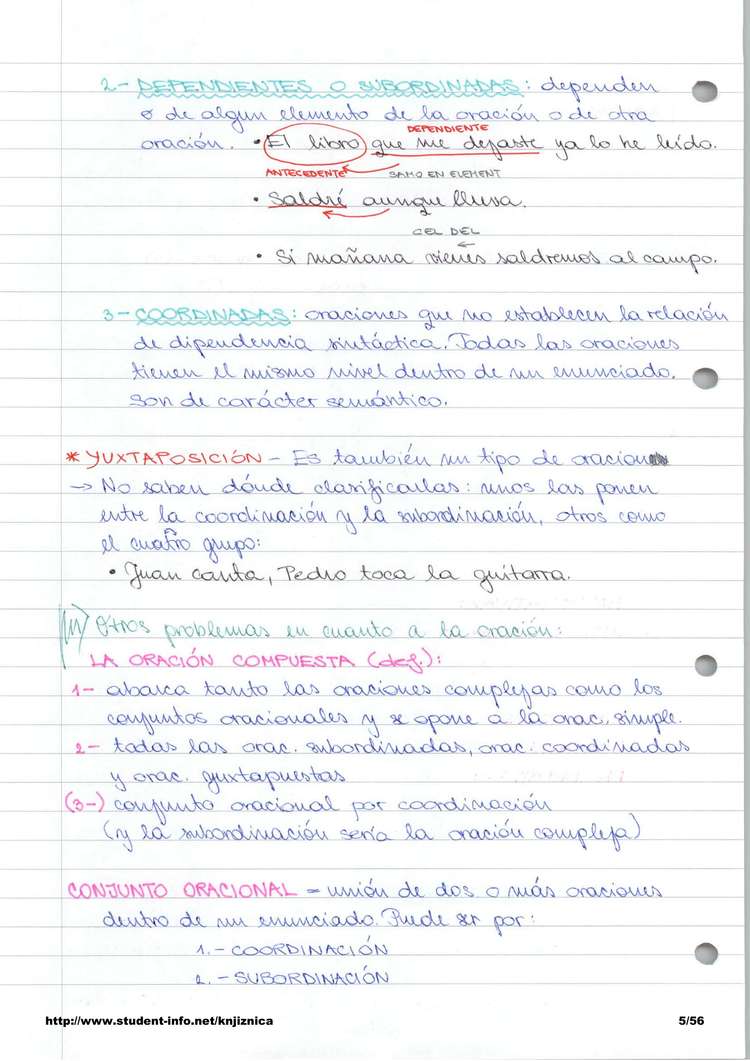 2- DEPENDIENTES O SUBORDINADAS: dependen
o de algun elemento de la oración o de otra
oración. • El libro que me dejaste ya lo he leído.
DEPENDIENTE
ANTECEDENTE SAMO EN ELEMENT
• Saldré aunque llueva.
CEL DEL
• Si mañana vienes saldremos al campo.
3- COORDINADAS: oraciones que no establecen la relación
de dipendencia sintáctica. Todas las oraciones
tienen el mismo nivel dentro de un enunciado.
Son de carácter semántico.
* YUXTAPOSICIÓN - Es también un tipo de oracion
→ No saben dónde clasificarlas: unos las ponen
entre la coordinación y la subordinación, otros como
el cuatro grupo:
• Juan canta, Pedro toca la guitarra.
Otros problemas en cuanto a la oración:
LA ORACIÓN COMPUESTA (def.):
1- abarca tanto las oraciones complejas como los
conjuntos oracionales y se opone a la orac. simple.
2- todas las orac. subordinadas, orac. coordinadas
y orac. yuxtapuestas
(3-) conjunto oracional por coordinación
(y la subordinación sería la oración compleja)
CONJUNTO ORACIONAL = unión de dos o más oraciones
dentro de un enunciado. Puede ser por:
1.- COORDINACIÓN
2.- SUBORDINACIÓN
http://www.student-info.net/knjiznica 5/56